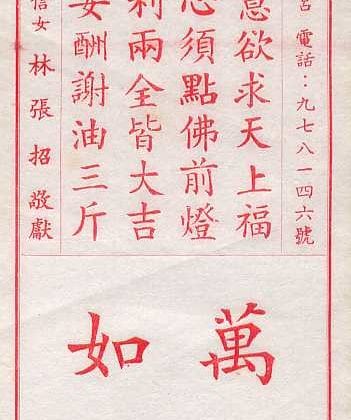 電話：九七八一四六號
意欲求天上福
心須點佛前燈
利兩全皆大吉
安酬謝油三斤
信女 林張招 敬獻
萬如